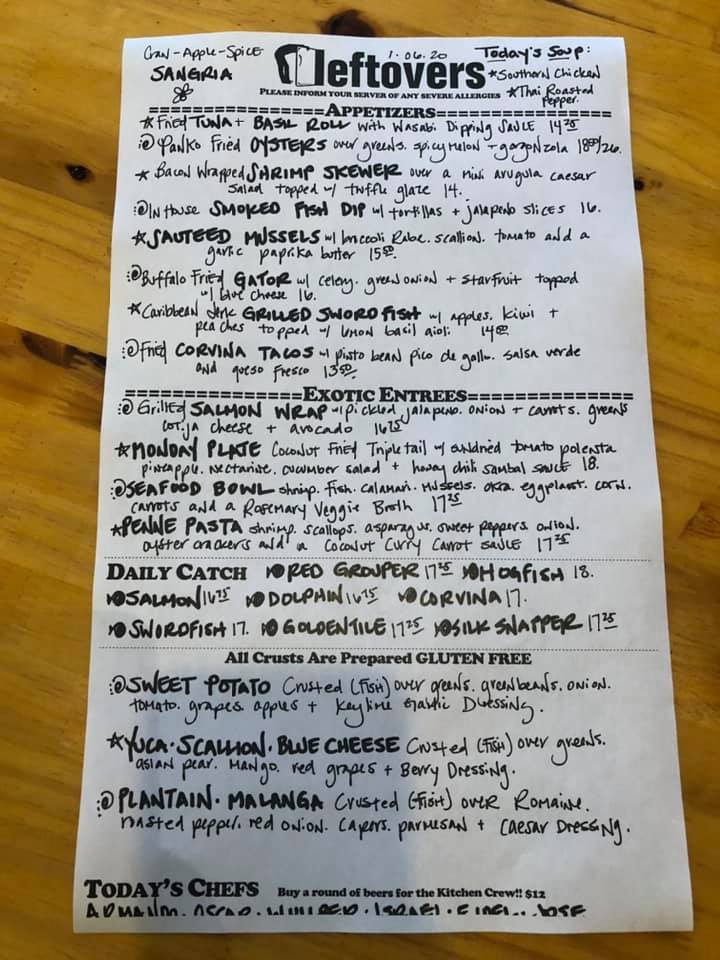 Cran-Apple-Spice
SANGRIA
leftovers
1.06.20
Today's Soup:
Southern Chicken
Thai Roasted
Pepper
PLEASE INFORM YOUR SERVER OF ANY SEVERE ALLERGIES
APPETIZERS
Fried TUNA + BASIL ROLL with Wasabi Dipping SAUCE 14.25
Panko Fried OYSTERS over greens. spicy melon + gorgonzola 18.50/26.
Bacon Wrapped SHRIMP SKEWER over a mini arugula caesar
Salad topped w/ truffle glaze 14.
In House SMOKED FISH DIP w/ tortillas + jalapeno slices 16.
SAUTEED MUSSELS w/ broccoli Rabe. scallion. tomato and a
garlic paprika butter 15.50
Buffalo Fried GATOR w/ celery. green onion + starfruit topped
w/ blue cheese 16.
Caribbean Jerk GRILLED SWORDFISH w/ apples. kiwi +
peaches topped w/ lemon basil aioli
Fried CORVINA TACOS w/ pinto bean pico de gallo. salsa verde
and queso fresco 13.50
EXOTIC ENTREES
Grilled SALMON WRAP w/ pickled jalapeno. onion + carrots. greens
cotija cheese + avocado 16.75
MONDAY PLATE Coconut Fried Tripletail w/ sundried tomato polenta
pineapple. nectarine. cucumber salad + honey chili sambal sauce 18.
SEAFOOD BOWL shrimp. fish. calamari. mussels. okra. eggplant. corn.
carrots and a Rosemary Veggie Broth 17.25
PENNE PASTA shrimp. scallops. asparagus. sweet peppers. onion.
oyster crackers and a Coconut Curry Carrot SAUCE 17.25
DAILY CATCH RED GROUPER 17.25 HOGFISH 18.
SALMON 16.75 DOLPHIN 16.75 CORVINA 17.
SWORDFISH 17. GOLDEN TILE 17.25 SILK SNAPPER 17.25
All Crusts Are Prepared GLUTEN FREE
SWEET POTATO Crusted (FISH) over greens. greenbeans. onion.
tomato. grapes apples + Keylime Garlic Dressing.
YUCA. SCALLION. BLUE CHEESE Crusted (FISH) over greens.
asian pear. mango. red grapes + Berry Dressing.
PLANTAIN. MALANGA Crusted (FISH) over Romaine.
roasted pepper. red onion. capers. parmesan + Caesar Dressing.
TODAY'S CHEFS Buy a round of beers for the Kitchen Crew!! $12
ARMANDO. OSCAR. ISRAEL. JOSE